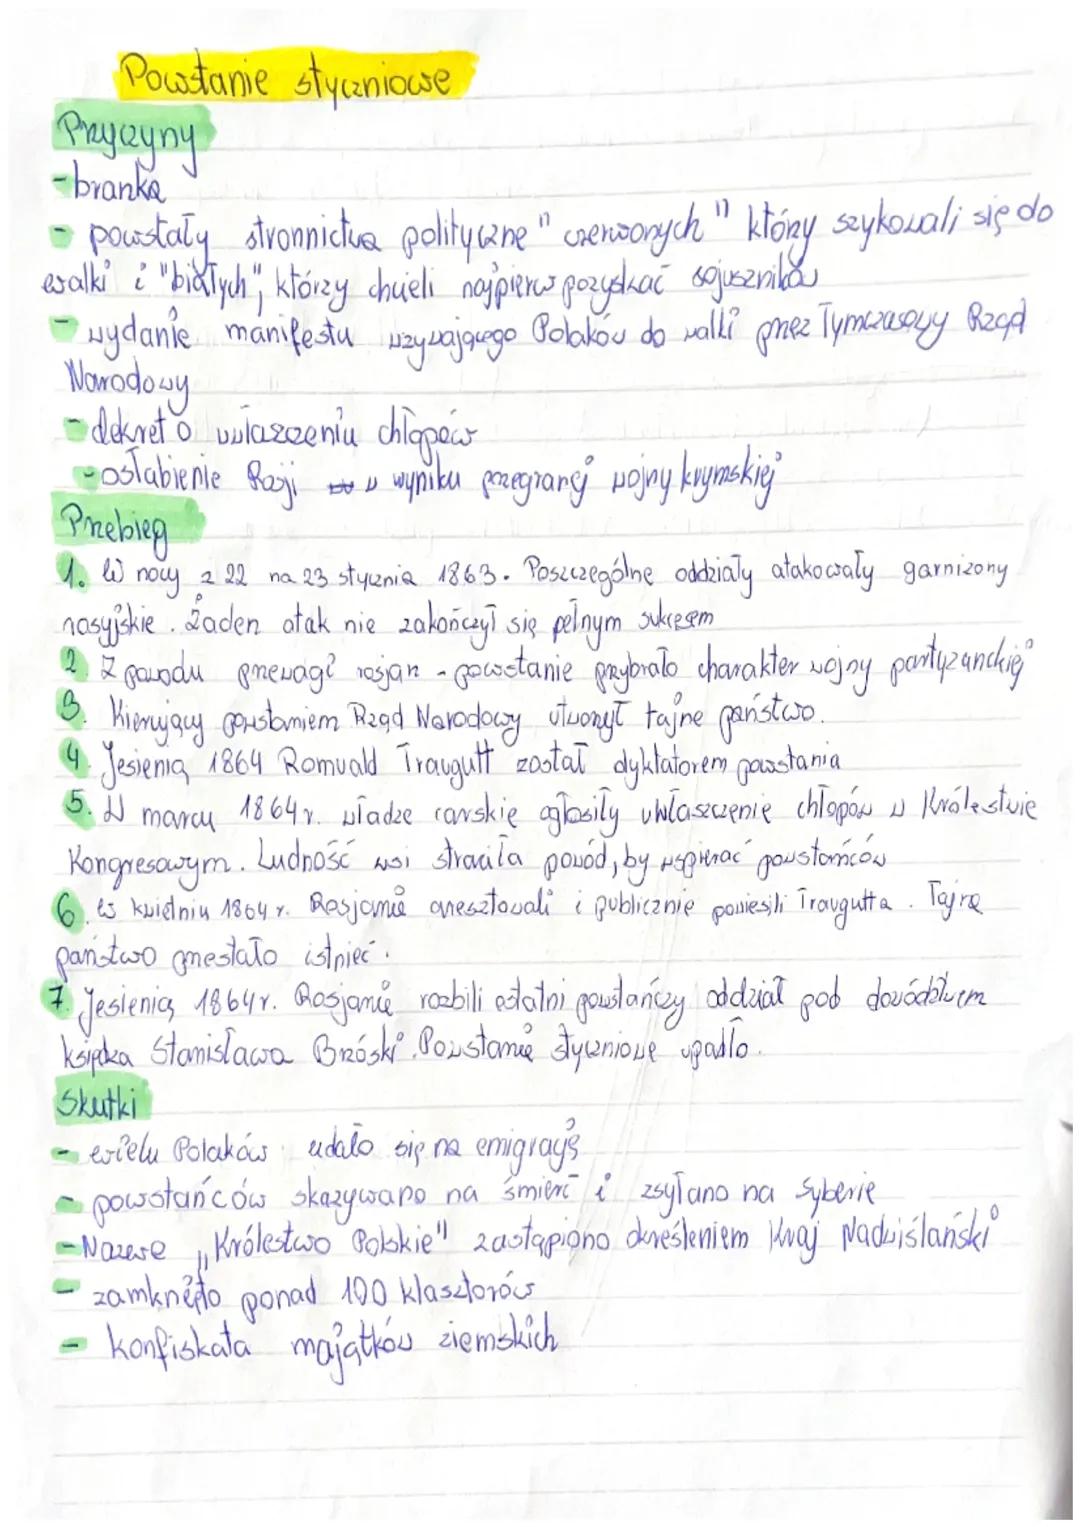 Powstanie styczniowe
Przyczyny
-branka
- powstały stronnictwa polityczne "czerwonych" którzy szykowali się do
walki i "białych", którzy chcieli najpierw pozyskać sojuszników
- wydanie manifestu wzywającego Polaków do walki przez Tymczasowy Rząd
Narodowy
- dekret o uwłaszczeniu chłopów
- osłabienie Rosji w wyniku przegranej wojny krymskiej
Przebieg
1. W nocy z 22 na 23 stycznia 1863. Poszczególne oddziały atakowały garnizony
rosyjskie. Żaden atak nie zakończył się pełnym sukcesem
2. Z powodu przewagi rosjan - powstanie przybrało charakter wojny partyzanckiej
3. Kierujący powstaniem Rząd Narodowy utworzył tajne państwo.
4. Jesienią 1864 Romuald Traugutt został dyktatorem powstania
5. W marcu 1864r. władze carskie ogłosiły uwłaszczenie chłopów w Królestwie
Kongresowym. Ludność wsi straciła powód, by wspierać powstańców
6. w kwietniu 1864 r. Rosjanie aresztowali i publicznie powiesili Traugutta. Tajne
państwo przestało istnieć.
7. Jesienią 1864r. Rosjanie rozbili ostatni powstańczy oddział pod dowództwem
księdza Stanisława Brzóski. Powstanie styczniowe upadło.
Skutki
- wielu Polaków udało się na emigracje
- powstańców skazywano na śmierć i zsyłano na Syberie
- Nazwe „Królestwo Polskie" zastąpiono określeniem Kraj Nadwiślański
- zamknięto ponad 100 klasztorów
- konfiskata majątków ziemskich